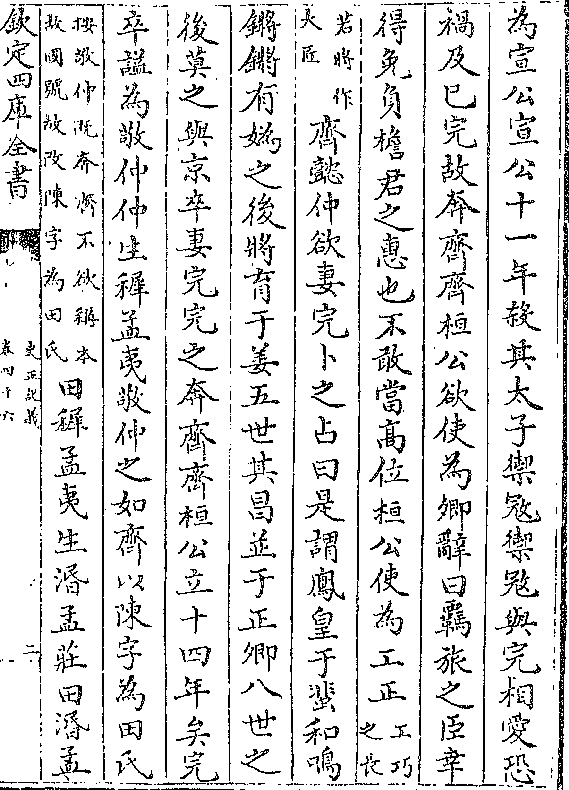 為宣公宣公十一年殺其太子禦寇禦寇與完相愛恐
禍及已完故奔齊齊桓公欲使為卿辭曰羈旅之臣幸
得免負檐君之惠也不敢當髙位桓公使為工正工巧之長
若將作大匠齊懿仲欲妻完卜之占曰是謂鳳皇于蜚和鳴
鏘鏘有媯之後將育于姜五世其昌並于正卿八世之
後莫之與京卒妻完完之奔齊齊桓公立十四年矣完
卒諡為敬仲仲生穉孟夷敬仲之如齊以陳字為田氏
按敬仲既奔齊不欲稱本故國號故改陳字為田氏田穉孟夷生湣孟莊田湣孟
欽定四庫全書
史記正義
卷四十六
二